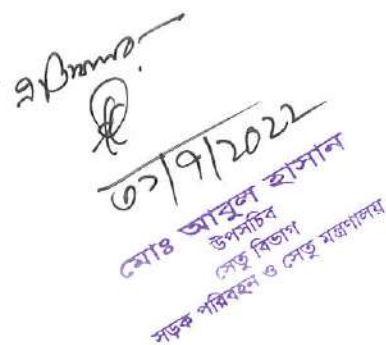 ৩১/৭/২০২২
মোঃ আবুল হাসান
উপসচিব
সেতু বিভাগ
সড়ক পরিবহন ও সেতু মন্ত্রণালয়